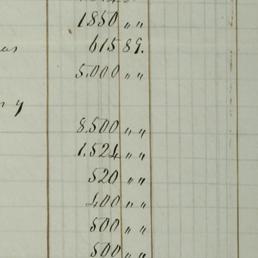 1850 " "
615 89.
5.000 " "
y
8.500 " "
1.524 " "
520 " "
400 " "
500 " "
500 " "